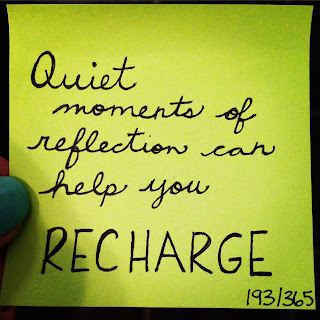 Quiet
moments of
reflection can
help you
RECHARGE
193/365